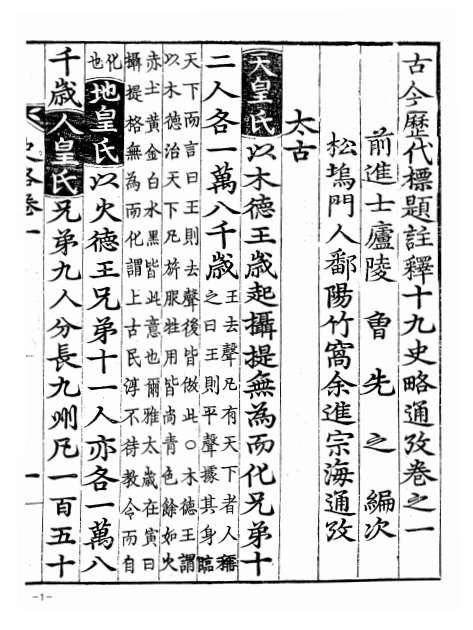 古今歷代標題註釋十九史略通攷卷之一
前進士廬陵曾先之編次
松塢門人鄱陽竹窩余進宗海通攷
太古
天皇氏以木德王歲起攝提無為而化兄弟十
二人各一萬八千歲王去聲凡有天下者人稱
之曰王則平聲據其身臨
天下而言曰王則去聲後皆倣此○木德王謂
以木德治天下凡旂服牲用皆尚青色餘如火
赤土黃金白水黑皆此意也爾雅太歲在寅曰
攝提格無為而化謂上古民淳不待教令而自
化也地皇氏以火德王兄弟十一人亦各一萬八
千歲人皇氏兄弟九人分長九州凡一百五十
史略卷一
一
-1-